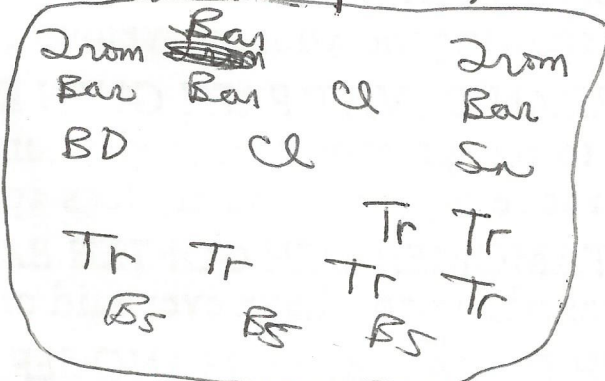 Bar
Trom Trom
Bar Bar Cl Bar
BD Cl Sn
Tr Tr
Tr Tr Tr Tr
Bs Bs Bs